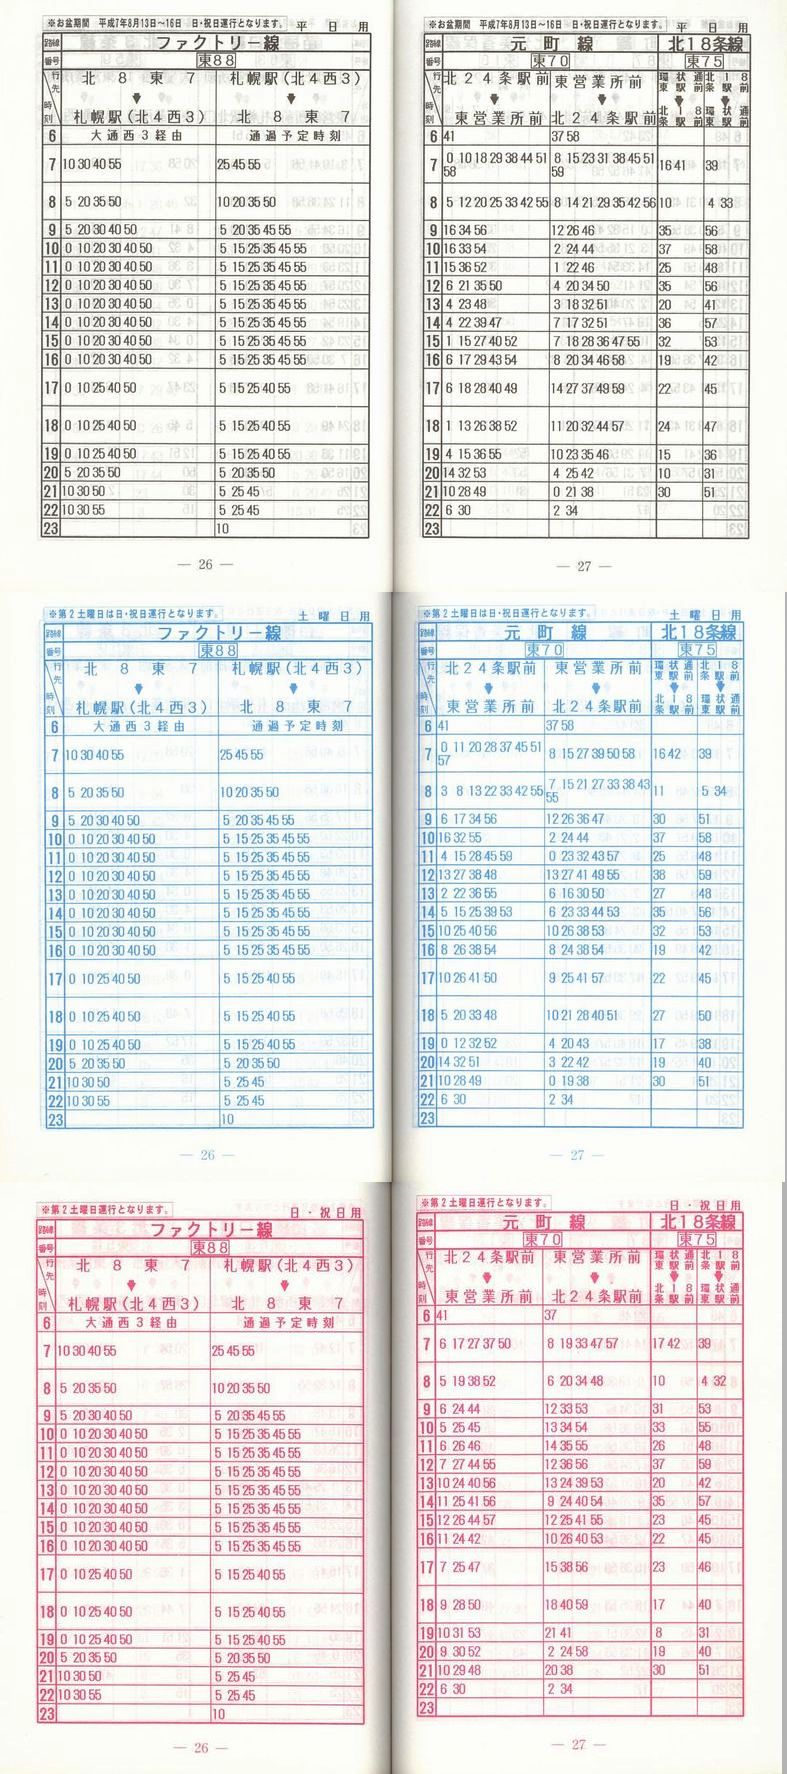 ※お盆期間 平成7年8月13日～16日 日・祝日運行となります。 平日用
路線 ファクトリー線
番号 東88
行先 北8東7 札幌駅(北4西3)
時刻 札幌駅(北4西3) 北8東7
6 大通西3経由 通過予定時刻
7 10 30 40 55 25 45 55
8 5 20 35 50 10 20 35 50
9 5 20 30 40 50 5 20 35 45 55
10 0 10 20 30 40 50 5 15 25 35 45 55
11 0 10 20 30 40 50 5 15 25 35 45 55
12 0 10 20 30 40 50 5 15 25 35 45 55
13 0 10 20 30 40 50 5 15 25 35 45 55
14 0 10 20 30 40 50 5 15 25 35 45 55
15 0 10 20 30 40 50 5 15 25 35 45 55
16 0 10 20 30 40 50 5 15 25 35 45 55
17 0 10 25 40 50 5 15 25 40 55
18 0 10 25 40 50 5 15 25 40 55
19 0 10 25 40 50 5 15 25 40 55
20 5 20 35 50 5 20 35 50
21 10 30 50 5 25 45
22 10 30 55 5 25 45
23 10
― 26 ―
※お盆期間 平成7年8月13日～16日 日・祝日運行となります。 平日用
路線 元町線 北18条線
番号 東70 東75
行先 北24条駅前 東営業所前 環状通東駅前 北18条駅前
時刻 東営業所前 北24条駅前 北18条駅前 環状通東駅前
6 41 37 58
7 0 10 18 29 38 44 51 58 8 15 23 31 38 45 51 59 16 41 39
8 5 12 20 25 33 42 55 8 14 21 29 35 42 56 10 4 33
9 16 34 56 12 26 46 35 56
10 16 33 54 2 24 44 37 58
11 15 36 52 1 22 46 25 48
12 6 21 35 50 4 20 34 50 35 56
13 4 23 48 3 18 32 51 20 41
14 4 22 39 47 7 17 32 51 36 57
15 1 15 27 40 52 7 18 28 36 47 55 32 53
16 6 17 29 43 54 8 20 34 46 58 19 42
17 6 18 28 40 49 14 27 37 49 59 22 45
18 1 13 26 38 52 11 20 32 44 57 24 47
19 4 15 36 55 10 23 35 46 15 36
20 14 32 53 4 25 42 10 31
21 10 28 49 0 21 38 30 51
22 6 30 2 34
23
― 27 ―
※第2土曜日は日・祝日運行となります。 土曜日用
路線 ファクトリー線
番号 東88
行先 北8東7 札幌駅(北4西3)
時刻 札幌駅(北4西3) 北8東7
6 大通西3経由 通過予定時刻
7 10 30 40 55 25 45 55
8 5 20 35 50 10 20 35 50
9 5 20 30 40 50 5 20 35 45 55
10 0 10 20 30 40 50 5 15 25 35 45 55
11 0 10 20 30 40 50 5 15 25 35 45 55
12 0 10 20 30 40 50 5 15 25 35 45 55
13 0 10 20 30 40 50 5 15 25 35 45 55
14 0 10 20 30 40 50 5 15 25 35 45 55
15 0 10 20 30 40 50 5 15 25 35 45 55
16 0 10 20 30 40 50 5 15 25 35 45 55
17 0 10 25 40 50 5 15 25 40 55
18 0 10 25 40 50 5 15 25 40 55
19 0 10 25 40 50 5 15 25 40 55
20 5 20 35 50 5 20 35 50
21 10 30 50 5 25 45
22 10 30 55 5 25 45
23 10
― 26 ―
※第2土曜日は日・祝日運行となります。 土曜日用
路線 元町線 北18条線
番号 東70 東75
行先 北24条駅前 東営業所前 環状通東駅前 北18条駅前
時刻 東営業所前 北24条駅前 北18条駅前 環状通東駅前
6 41 37 58
7 0 11 20 28 37 45 51 57 8 15 27 39 50 58 16 42 39
8 3 8 13 22 33 42 55 7 15 21 27 33 38 43 55 11 5 34
9 6 17 34 56 12 26 36 47 30 51
10 16 32 55 2 24 44 37 58
11 4 15 28 45 59 0 23 32 43 57 25 48
12 13 27 38 48 13 27 41 49 55 38 59
13 2 22 36 55 6 16 30 50 27 48
14 5 15 25 39 53 6 23 33 44 53 35 56
15 10 25 40 56 10 26 38 53 32 53
16 8 26 38 54 8 24 38 54 19 42
17 10 26 41 50 9 25 41 57 22 45
18 5 20 33 48 10 21 28 40 51 27 50
19 0 12 32 52 4 20 43 17 38
20 14 32 51 3 22 42 19 40
21 10 28 49 0 19 38 30 51
22 6 30 2 34
23
― 27 ―
※第2土曜日運行となります。 日・祝日用
路線 ファクトリー線
番号 東88
行先 北8東7 札幌駅(北4西3)
時刻 札幌駅(北4西3) 北8東7
6 大通西3経由 通過予定時刻
7 10 30 40 55 25 45 55
8 5 20 35 50 10 20 35 50
9 5 20 30 40 50 5 20 35 45 55
10 0 10 20 30 40 50 5 15 25 35 45 55
11 0 10 20 30 40 50 5 15 25 35 45 55
12 0 10 20 30 40 50 5 15 25 35 45 55
13 0 10 20 30 40 50 5 15 25 35 45 55
14 0 10 20 30 40 50 5 15 25 35 45 55
15 0 10 20 30 40 50 5 15 25 35 45 55
16 0 10 20 30 40 50 5 15 25 35 45 55
17 0 10 25 40 50 5 15 25 40 55
18 0 10 25 40 50 5 15 25 40 55
19 0 10 25 40 50 5 15 25 40 55
20 5 20 35 50 5 20 35 50
21 10 30 50 5 25 45
22 10 30 55 5 25 45
23 10
― 26 ―
※第2土曜日運行となります。 日・祝日用
路線 元町線 北18条線
番号 東70 東75
行先 北24条駅前 東営業所前 環状通東駅前 北18条駅前
時刻 東営業所前 北24条駅前 北18条駅前 環状通東駅前
6 41 37
7 6 17 27 37 50 8 19 33 47 57 17 42 39
8 5 19 38 52 6 20 34 48 10 4 32
9 6 24 44 12 33 53 31 53
10 5 25 45 13 34 54 33 55
11 6 26 46 14 35 55 26 48
12 7 27 44 55 12 36 56 37 59
13 10 24 40 56 13 24 39 53 20 42
14 11 25 41 56 9 24 40 54 35 57
15 12 26 44 57 12 25 41 55 23 45
16 11 24 42 10 26 40 53 22 45
17 7 25 47 15 38 56 23 46
18 9 28 50 18 40 59 17 40
19 10 31 53 21 41 8 31
20 9 30 52 2 24 58 19 40
21 10 29 48 20 38 30 51
22 6 30 2 34
23
― 27 ―